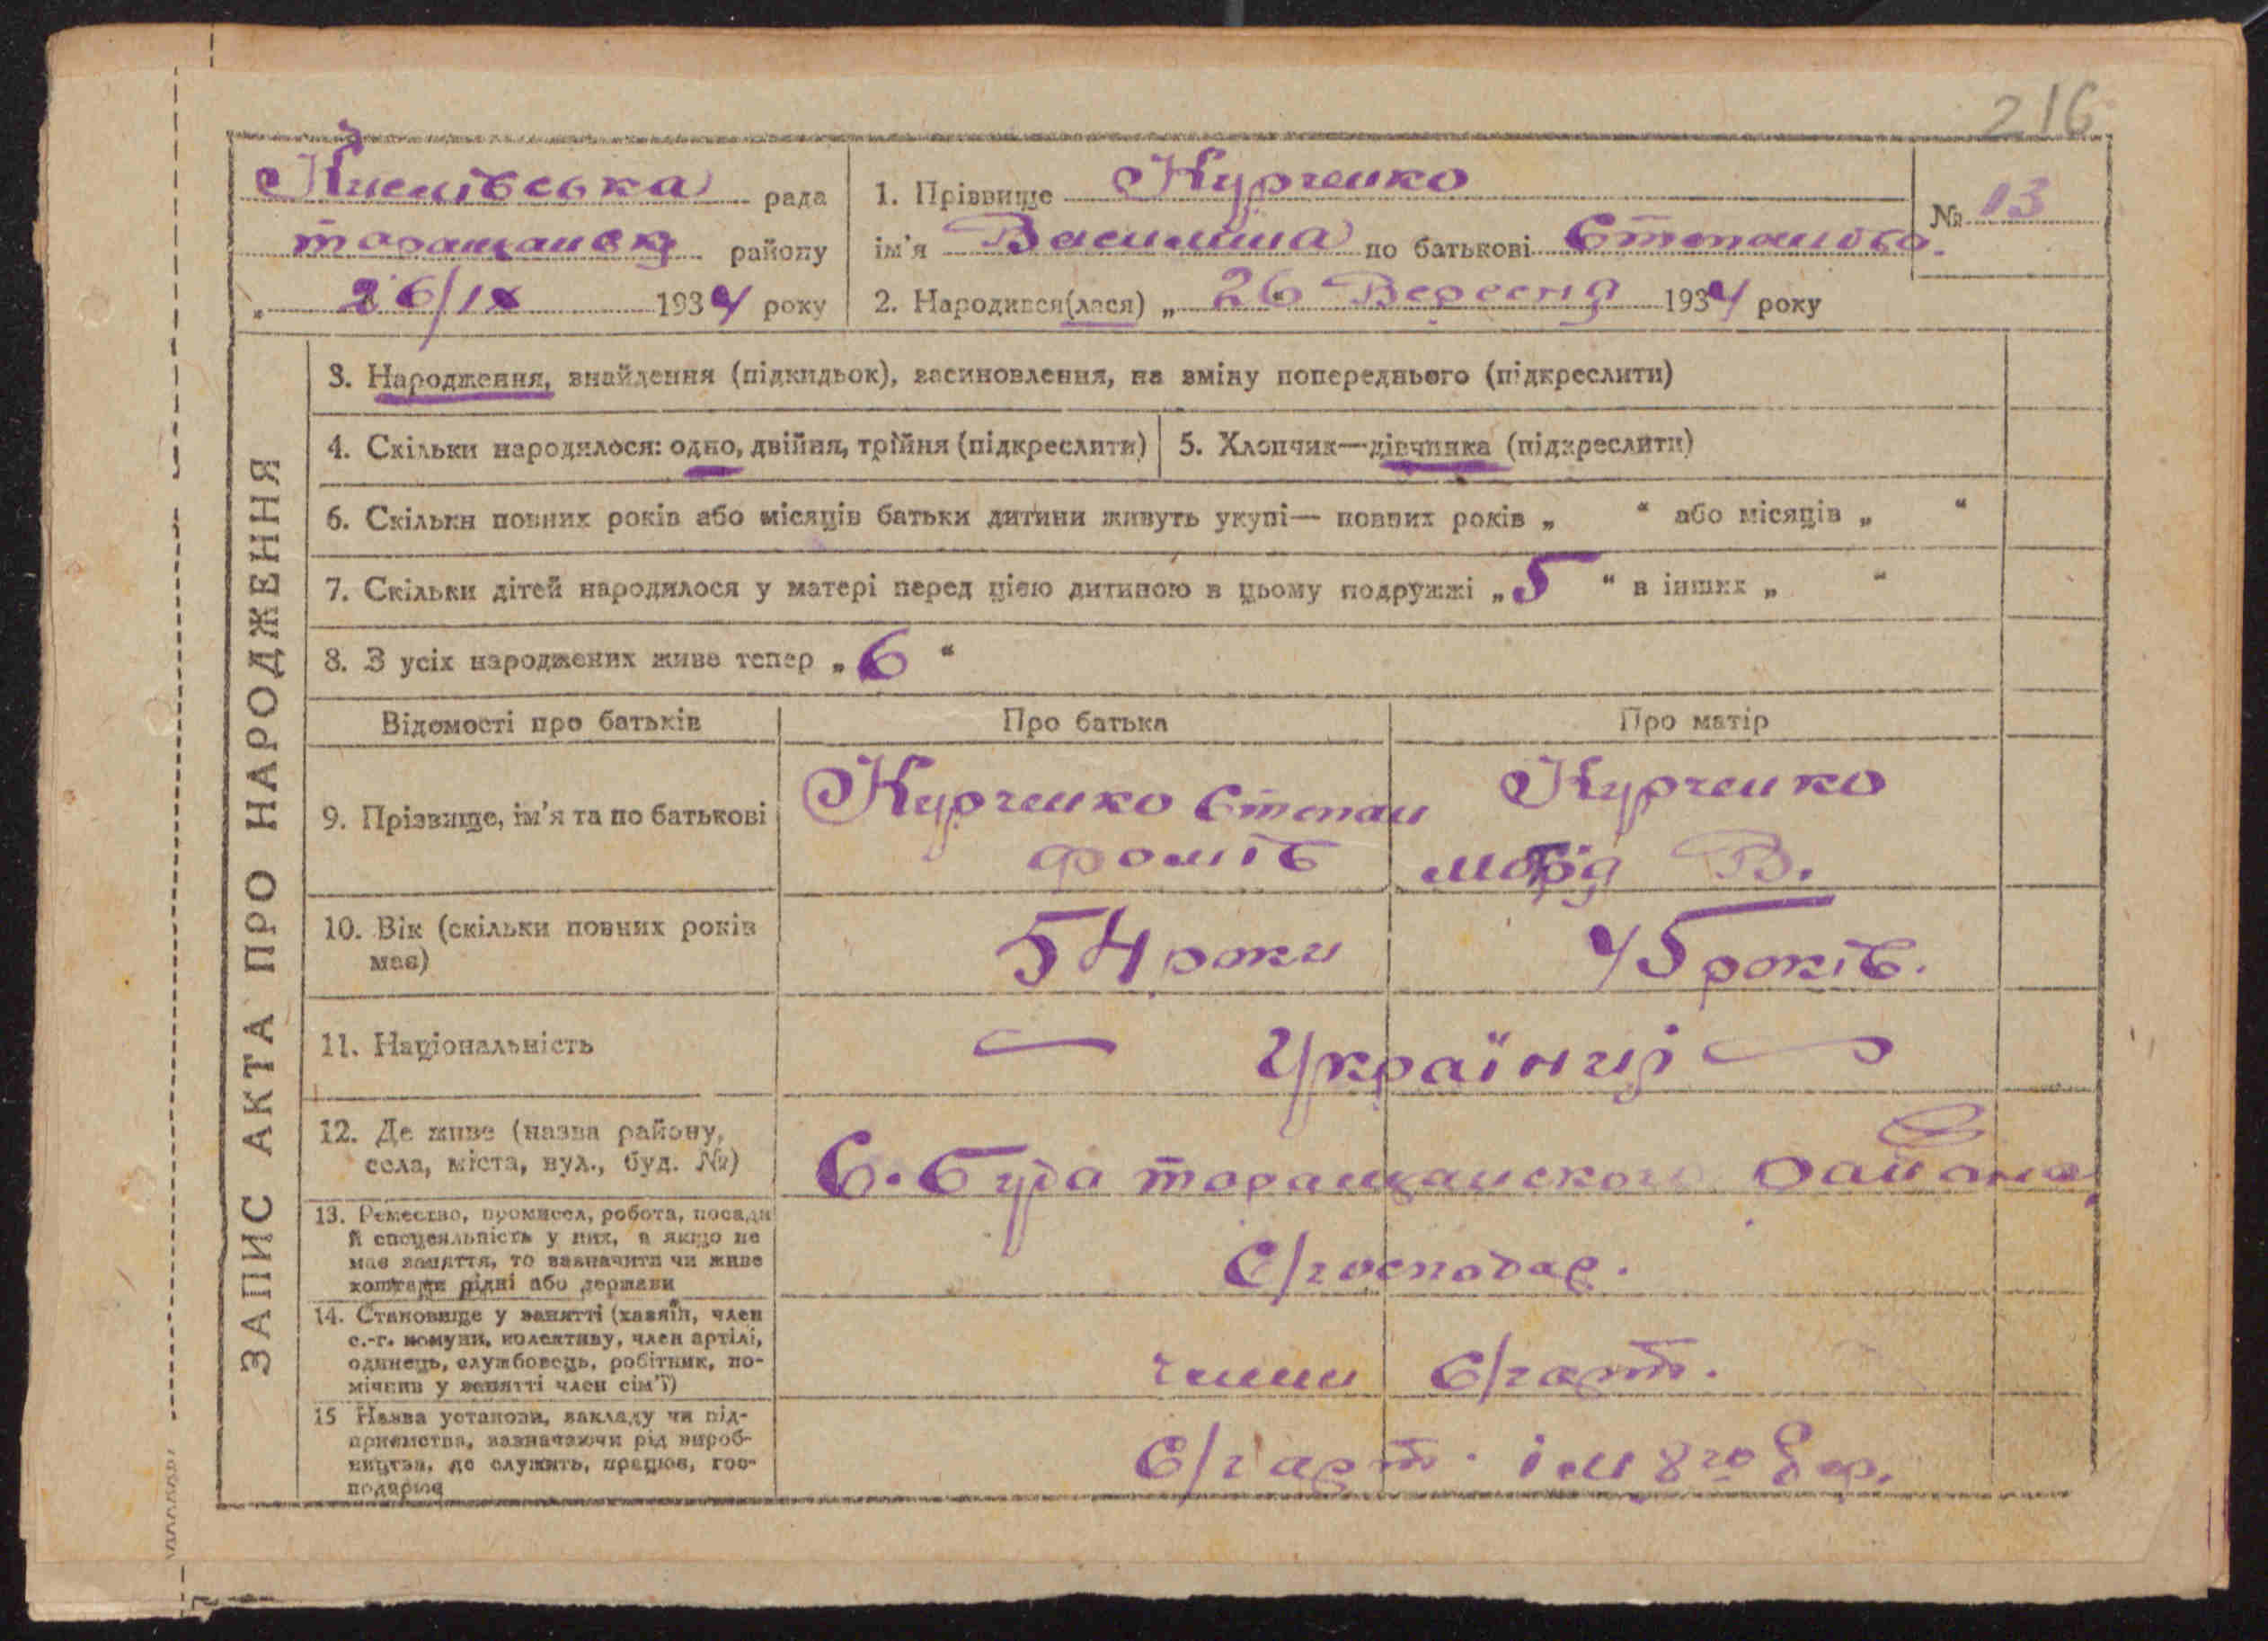 216
Кислівська рада
таращанск району
„ 26/IX 1934 року
1. Прізвище Курченко
ім'я Василина по батькові Степанова.
2. Народився(лася) „ 26 " Вересня 1934 року
№ 13
ЗАПИС АКТА ПРО НАРОДЖЕННЯ
3. Народження, знайдення (підкидьок), засиновлення, на зміну попереднього (підкреслити)
4. Скільки народилося: одно, двійня, трійня (підкреслити)
5. Хлопчик—дівчинка (підкреслити)
6. Скільки повних років або місяців батьки дитини живуть укупі— повних років „ “ або місяців „ “
7. Скільки дітей народилося у матері перед цією дитиною в цьому подружжі „5“ в інших „ “
8. З усіх народжених живе тепер „6“
Відомості про батьків
Про батька
Про матір
9. Прізвище, ім'я та по батькові
Курченко Степан
фомів
Курченко
В.
10. Вік (скільки повних років
має)
54 роки
45 років.
11. Національність
— Українці —
12. Де живе (назва району,
села, міста, вул., буд. №)
С. Буда таращанского району
13. Ремество, промисел, робота, посада
й спецеяльність у них, а якщо не
має заняття, то зазначити чи живе
коштами рідні або держави
С/господар.
14. Становище у занятті (хазяїн, член
с.-г. комуни, колективу, член артілі,
одинець, службовець, робітник, по-
мічник у занятті член сім'ї)
члени С/г арт.
15 Назва установи, закладу чи під-
приємства, зазначаючи рід вироб-
ництва, де служить, працює, гос-
подарює
С/г арт. ім 8го